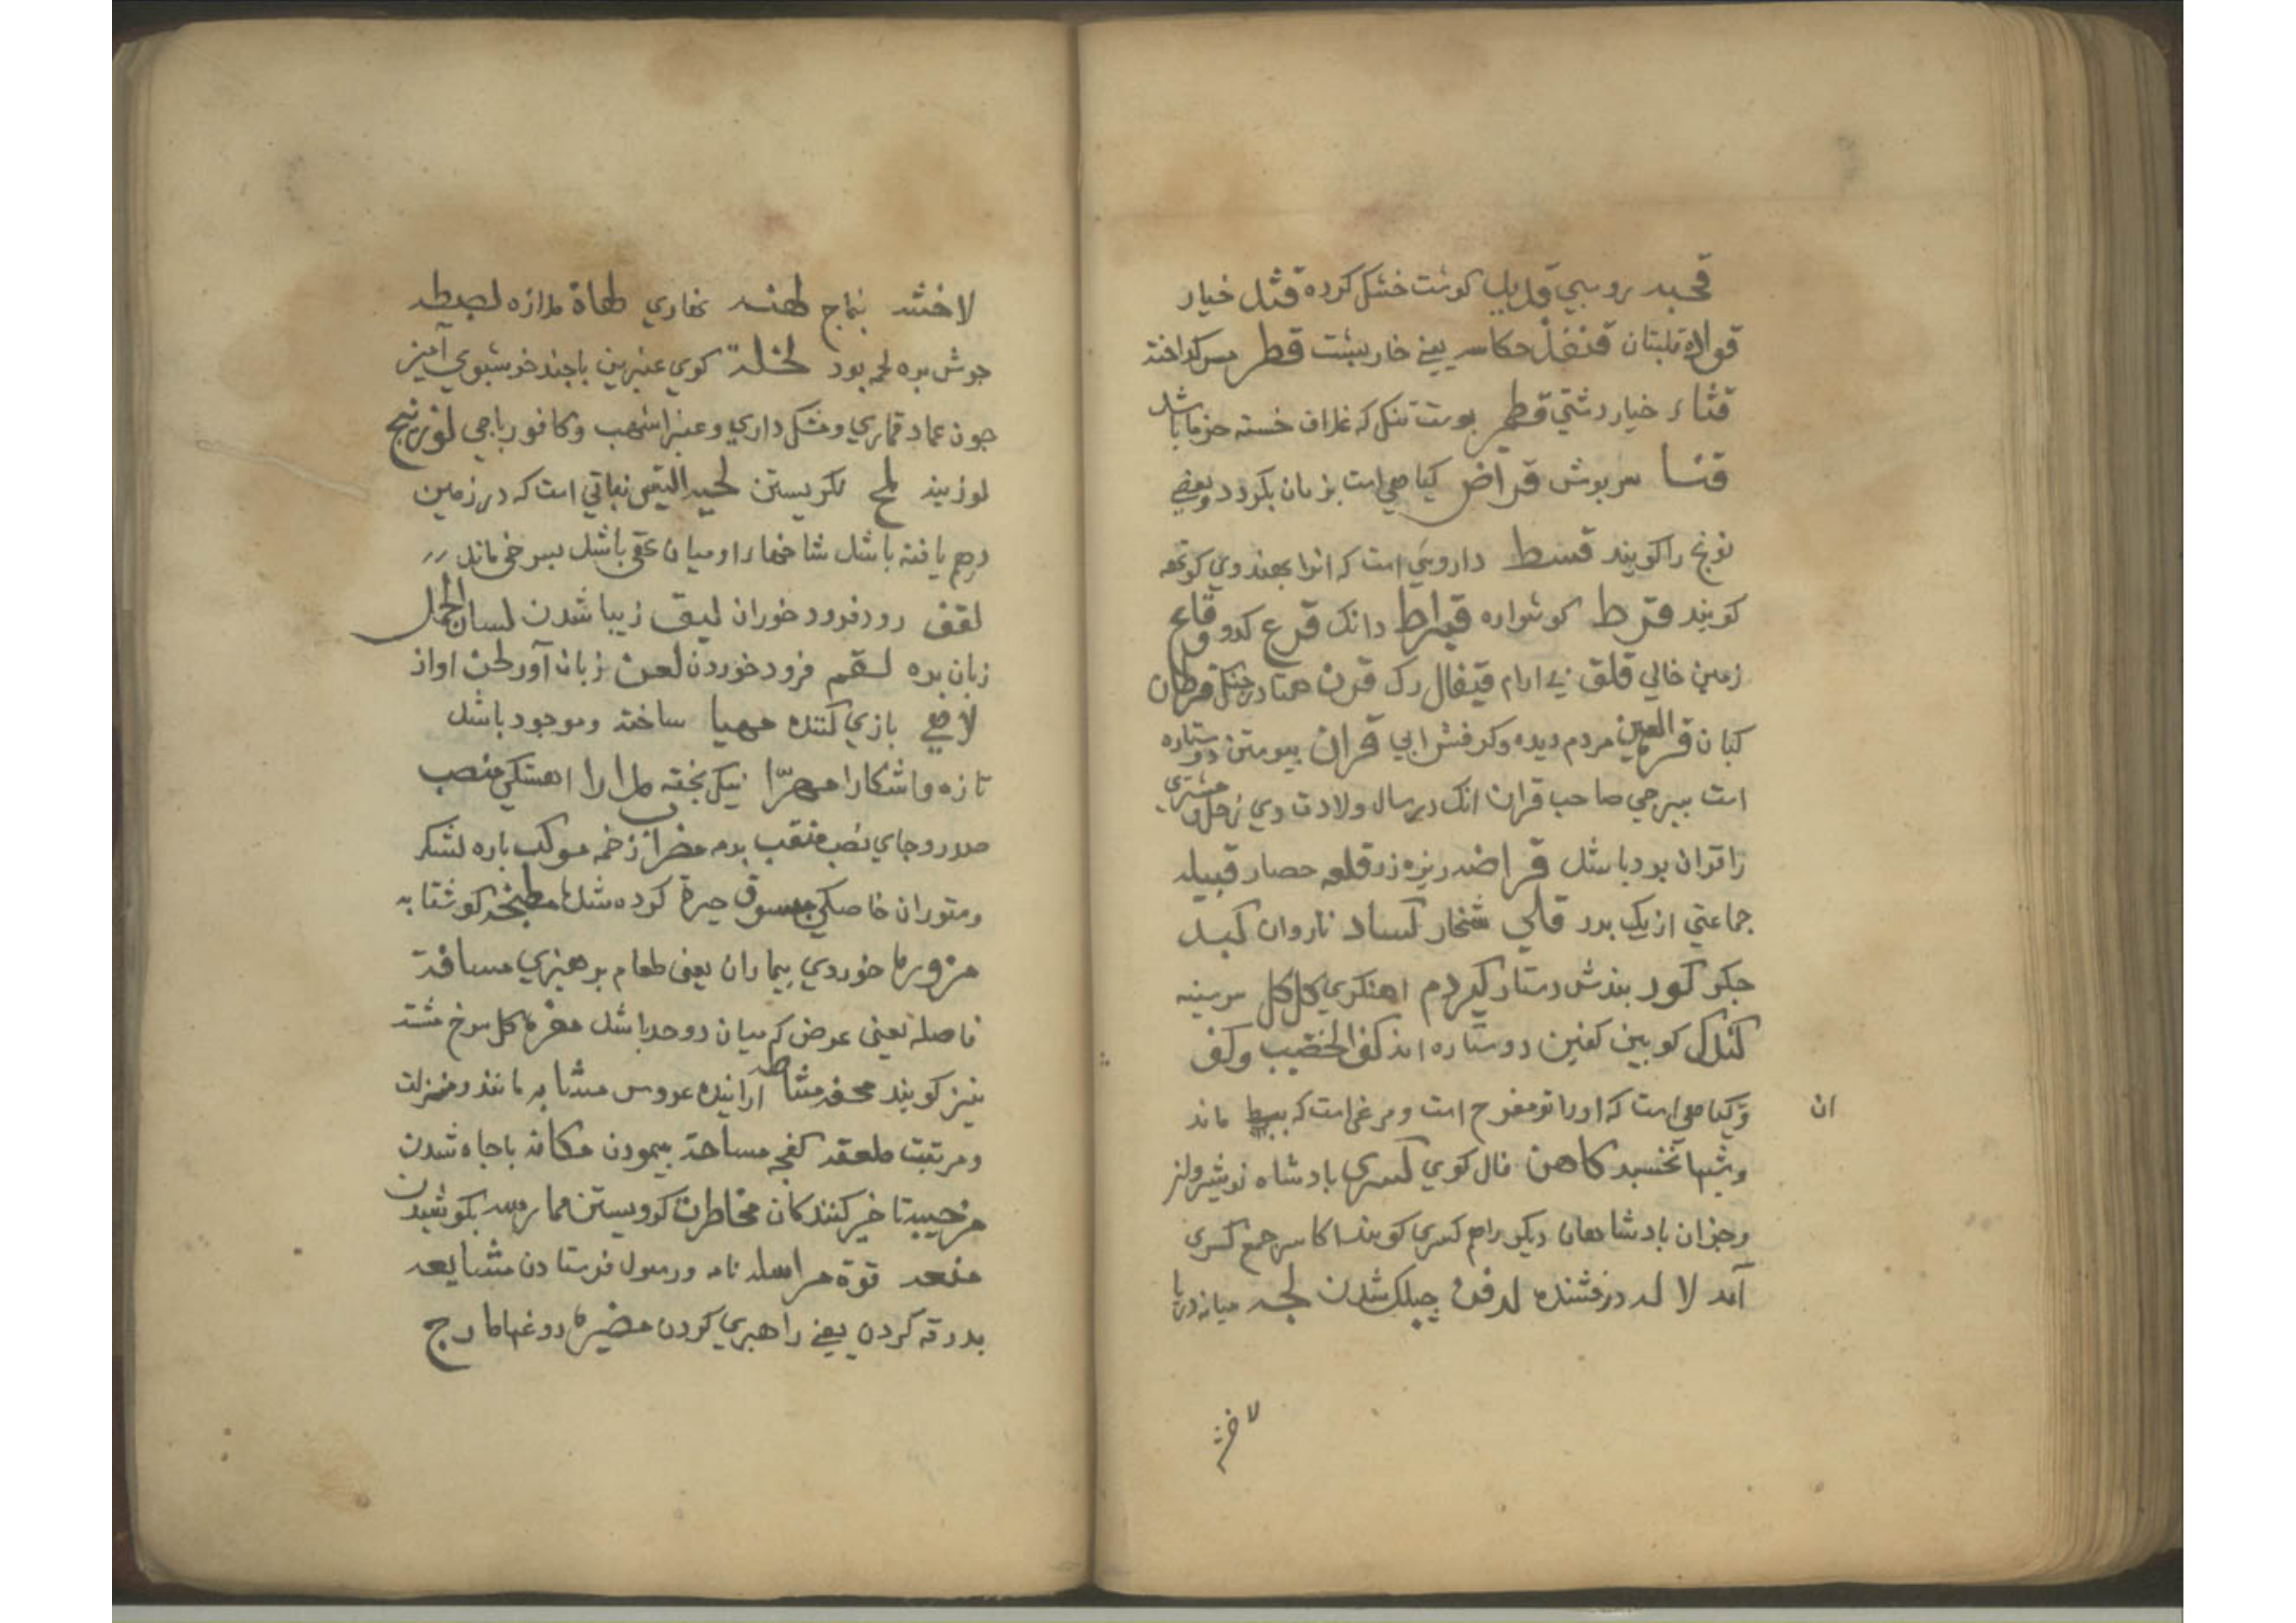 قحبه روسپي قدید کوشت خشک کرده قثد خیار
قواله قلبتان قنفذ حکاسه یعني خاربشت قطر مس کداخته
قثاء خیار دشتي قطمیر بوست تنک که غلاف خسته خرما باشد
قنسا سربوش قراض کیاهي است بزمان بکردد وبعضي
نونج را کویند قسط داروئي است که انرا بهندوي کوتهه
کویند قرط کوشواره قیراط دانک قرع کدو وقاع
زمین خالي قلق بي ارام قیفال رک قرن همتا در جنک قرطان
کبان قرة العین مردم دیده وکرفش ابي قران بیوستن دو ستاره
است ببرجي صاحب قران انک در سال ولادت وي زحل ومشتري
را قران بود باشد قراضه ریزه زر قلعه حصار قبیله
جماعتي از یک بدر قلي شخار کساد ناروان کبد
جکر کور بندش دستار کیر دم اهنکري کلکل سرسینه
کندک کوبین کفین دو ستاره اند کف الخضیب وکف
وکیاهي است که اورا تو مفرح است ومرغي است که ببط ماند
ان
وشبها نخسبد کاهن فال کوي کسري بادشاه نوشیروانر
وجزان بادشاهان دیکر راهم کسري کویند اکاسر جمع کسري
آمد لا لد درفشنده لدفن جبلک شدن لجه میانه دریا
لاخشه
لاخشه بتماج لهنه نغاري لهاة ملازه لصطه
جوش بره لجه بود لخلة کوي عنبرین باجند خوشبوي آمیز
جون عماد قماري ومشک داري وعنبر اشهب وکافور باجي لوزینج
لوزینه لمح نکریستن لحیة التیس نباتي است که در زمین
درهم یافته باشد شاخهاء او میان تهي باشد بسرخي ماند
لقف زود فرود خوران لیق زیبا شدن لسان الجمل
زبان بره لقم فرود خوردن لعن زبان آور لحن اواز
لاعب بازي کننده مهیا ساخته وموجود باشد
تازه واشکارا مهرا نیک بخته مدارا اهستکي منصب
صدر وجاي نصب منقب برمه مضراب زخمه موکب باره لشکر
وستوران خاصکي مسوق جیرة کرده شد مطنجنه کوشتابه
مزورها خوردي بیماران یعنی طعام برهیزي مسافة
فاصله یعنی عرض که میان دو حد باشد مغره کل سرخ مشته
نیز کویند محفه مشاطه ارانیده عروس مشابه مانند ومنزلت
ومرتبت ملعقه کفجه مساحة بیمودن مکانه باجاه شدن
مزحیبة تاخیر کنندکان مخاطرت کروبستن ممارسه بکوشیدن
منعه قوة مراسله نامه ورسول فرستادن مشایعه
بدرقه کردن یعني راهبري کردن مضیرها دوغبا مارج